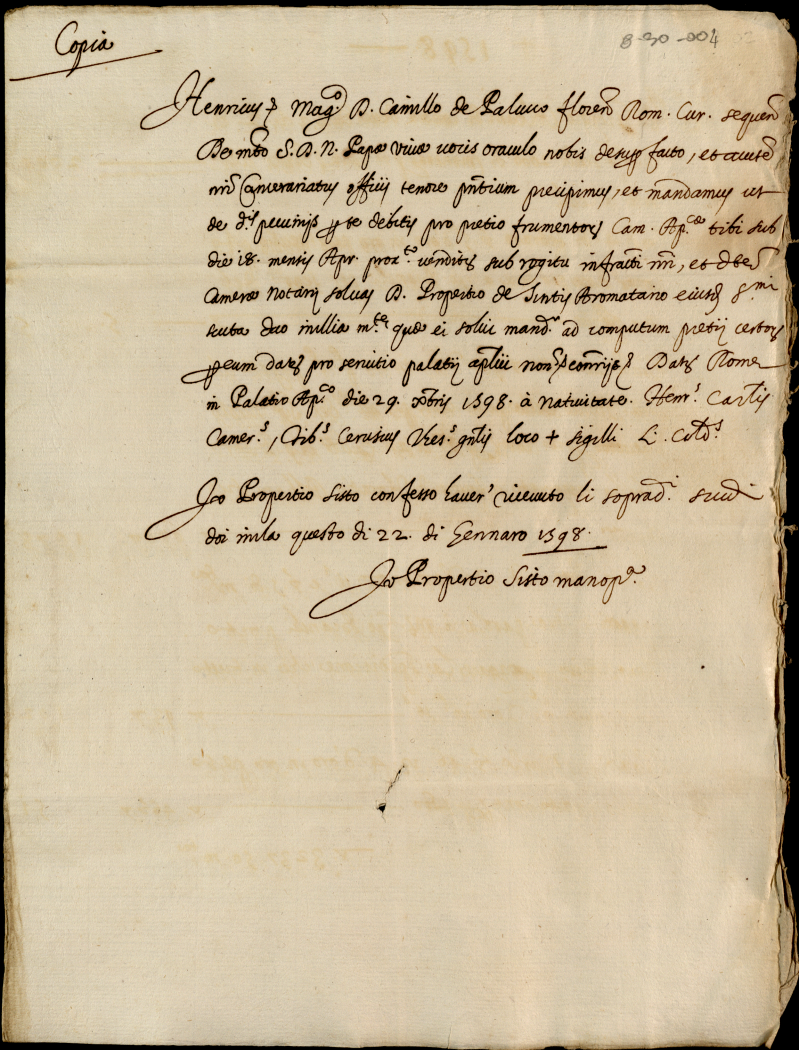 Copia
8-30-004
Henricus &c. Mag.co D. Camillo de Palucco floren. Rom. Cur. sequen.
De m.to S. D. N. Papæ vivæ vocis oraculo nobis desup. facto, et aucte
nri Camerariatus officij tenore pntium precipimus, et mandamus ut
de d.is pecunijs p te debitis pro pretio frumentor. Cam. Ap.cæ tibi sub
die 18. mensis Apr. prox.e venditis sub rogitu infracti nri, et dte
Cameræ Notarij solvas D. Propertio de Sistis Aromatario eiusd. S.mi
scuta duo millia m.tæ quæ ei solvi mand. ad computum pretij certor.
p eum dator. pro servitio palatij aplici non. &c. contrijs &c. Dat. Romæ
in Palatio Ap.co die 29. Xbris 1598. à nativitate. Henr.s Car.lis
Camer.s, Tib.s Cerusius Thes.s gnlis loco + sigilli L. Cald.s
Jo Propertio Sisto confesso haver ricevuto li soprad.i scudi
doi mila questo di 22. di Gennaro 1598.
Jo Propertio Sisto mano p.a